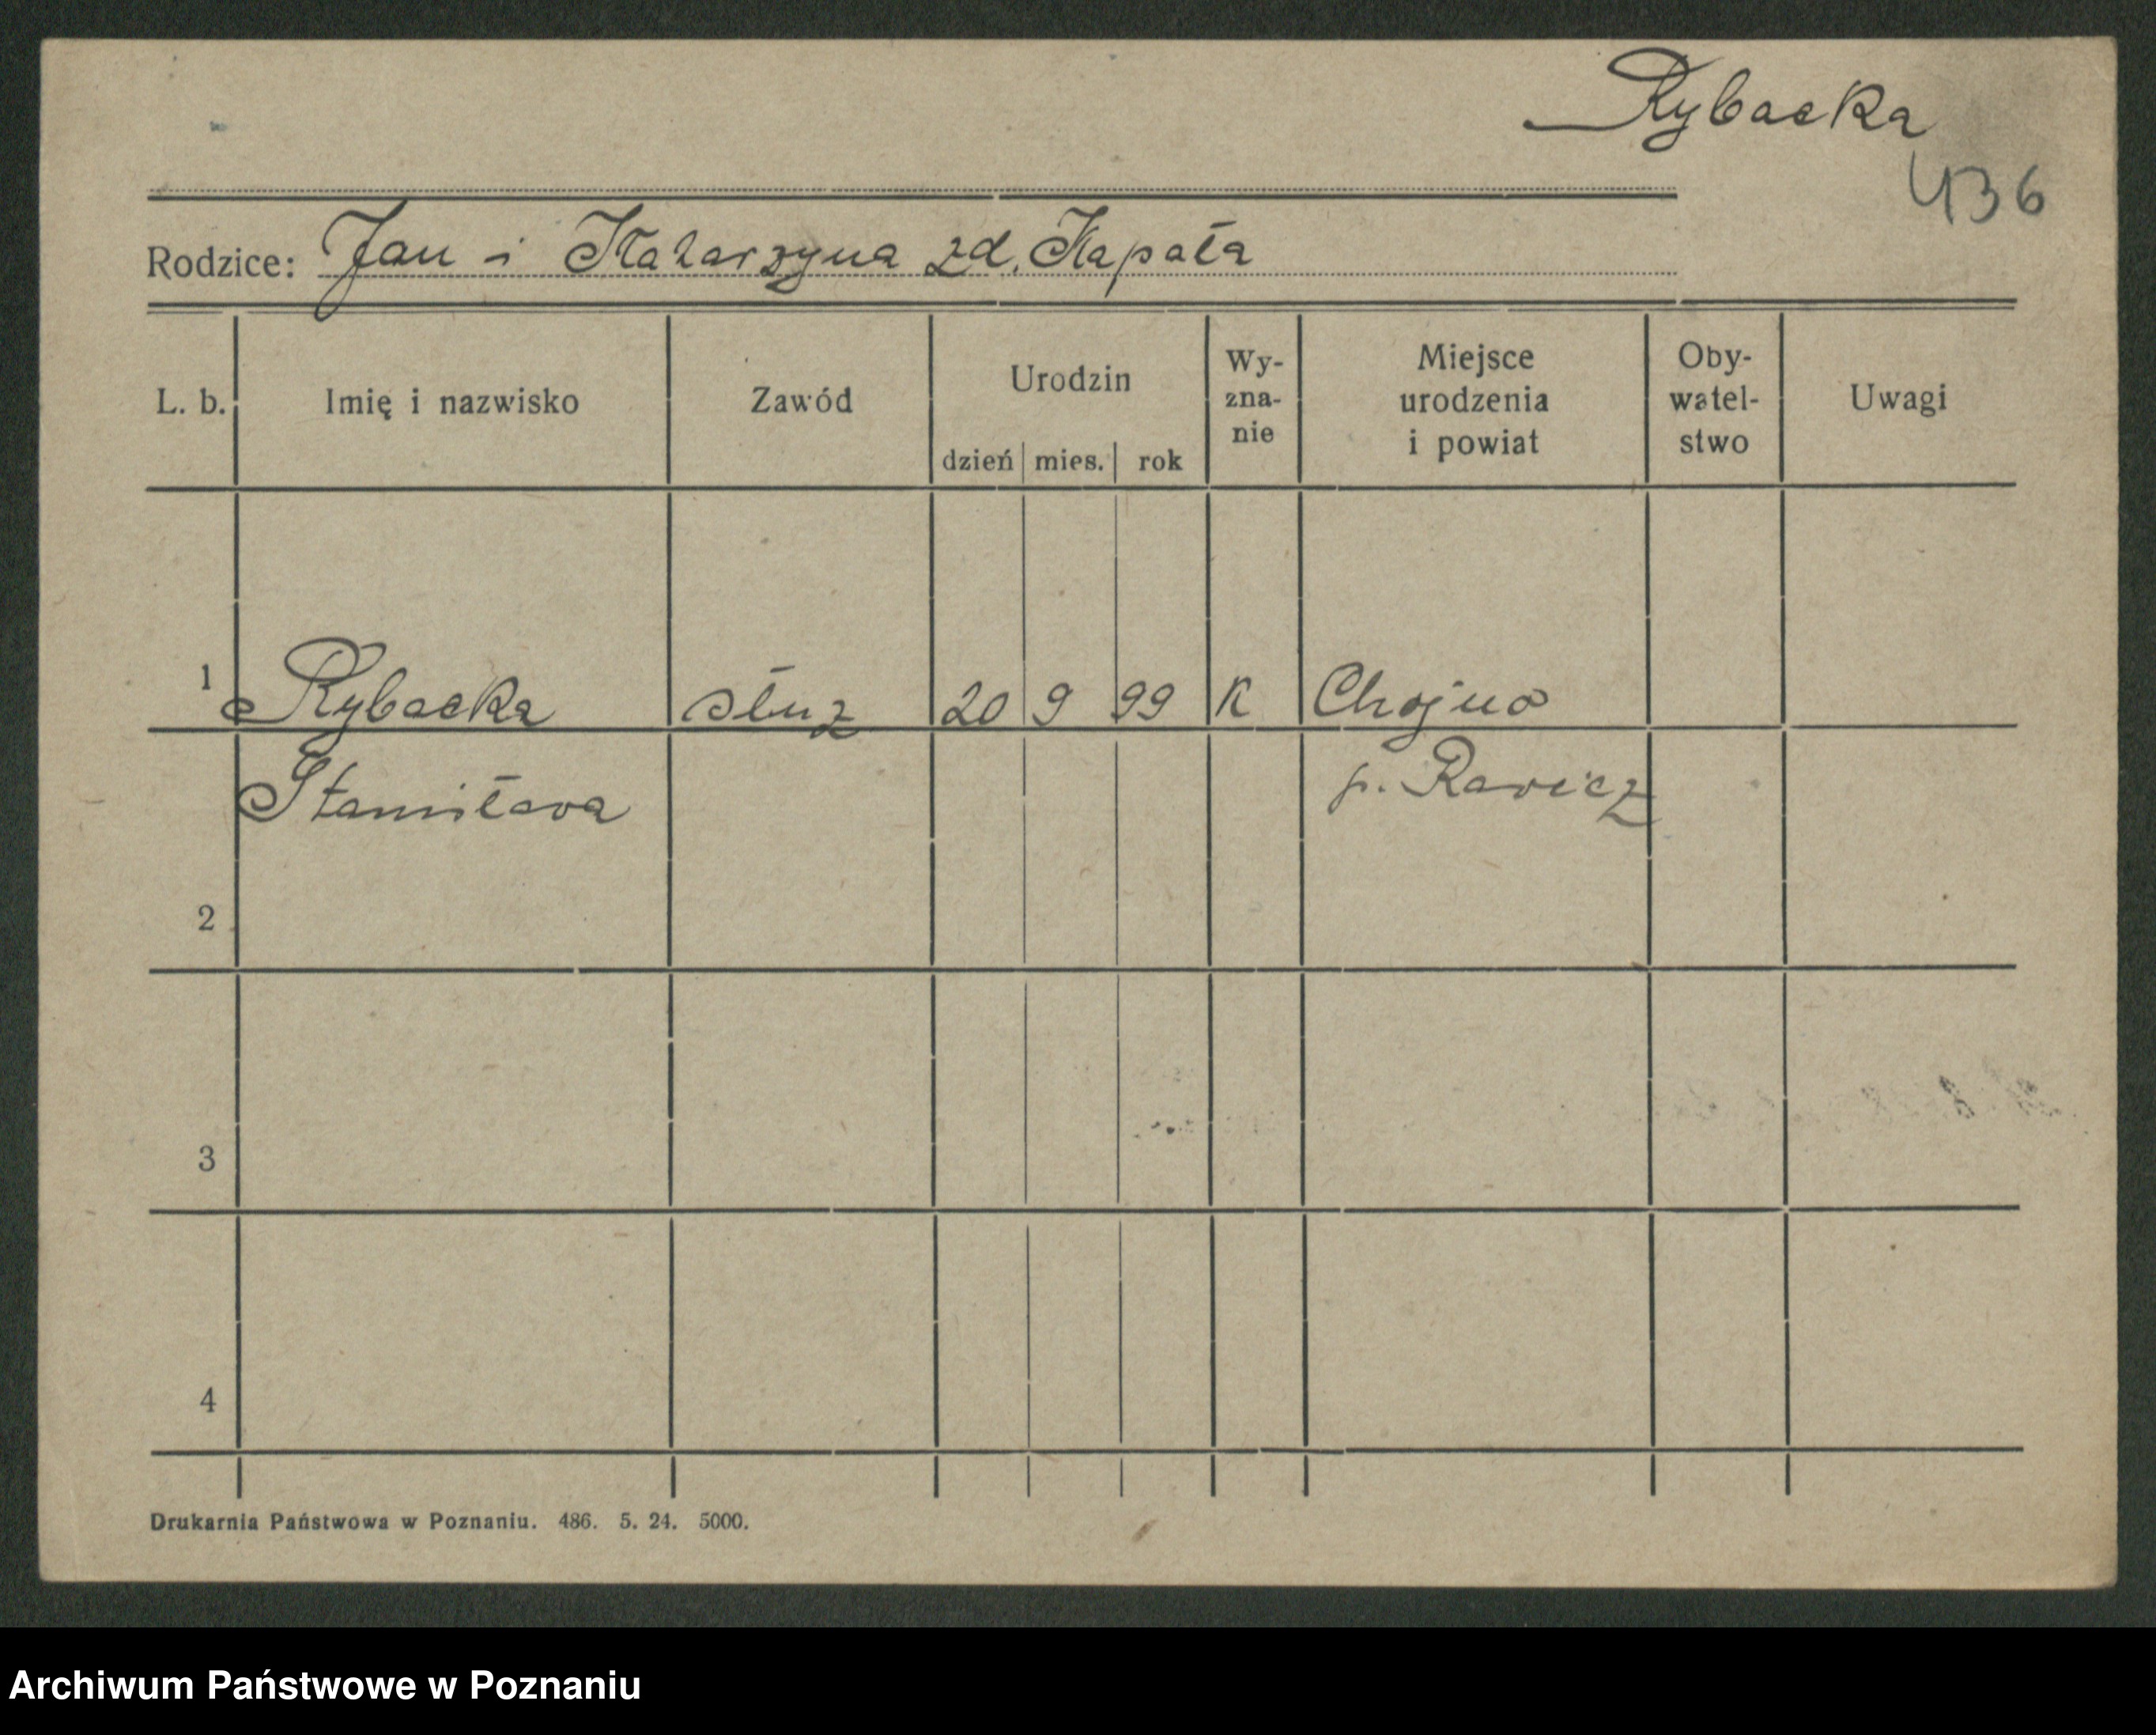 Rybacka
436
Rodzice: Jan i Katarzyna zd. Kapała
L. b. Imię i nazwisko Zawód Urodzin dzień mies. rok Wy-zna-nie Miejsce urodzenia i powiat Oby-watel-stwo Uwagi
1 Rybacka służ 20 9 99 K Chojno
Stanisława p. Rawicz
2
3
4
Drukarnia Państwowa w Poznaniu. 486. 5. 24. 5000.
Archiwum Państwowe w Poznaniu